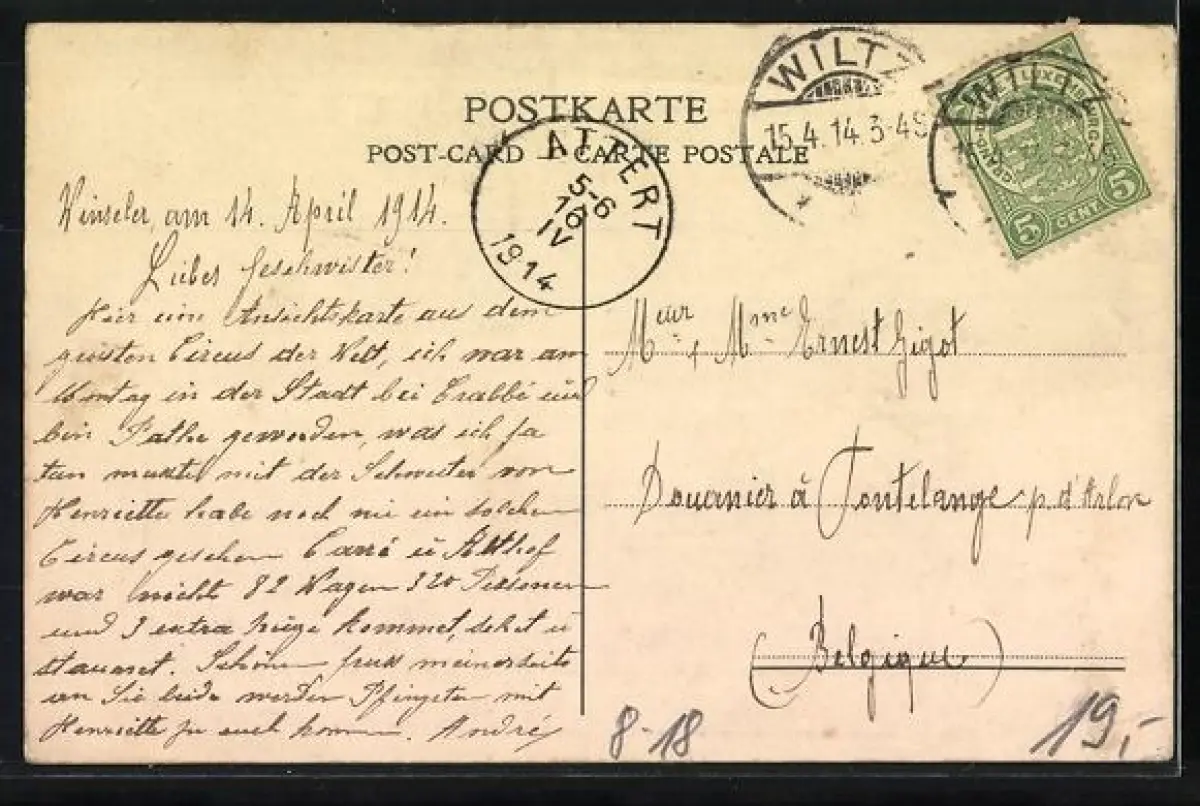 POSTKARTE
POST-CARD — CARTE POSTALE
WILTZ
15.4.14 3-4S
WILTZ
GRAND-DUCHÉ DE LUXEMBOURG
5 CENT. 5
ATTERT
5-6
16
IV
1914
Winseler, am 14. April 1914.
Lieber Geschwister!
Hier eine Ansichtskarte aus dem
grössten Circus der Welt, ich war am
Montag in der Stadt bei und
bin Pathe geworden, was ich ja
tun musste mit der Schwester von
Henriette habe noch nie ein solchen
Circus gesehen Carré u Althof
war nichts 82 Wagen 320 Personen
und 3 extra Züge kommet, sehet u
staunet. Schönen gruss meinerseits
an Sie beide werden Pfingsten mit
Henriette zu euch kommen. André
Meur & Mme Ernest Gigot
Douanier à Tontelange p. d'Arlon
(Belgique)
8-18
19,-